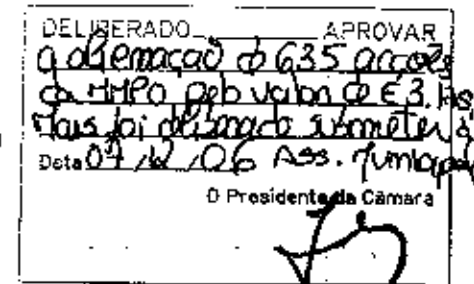 DELIBERADO APROVAR
a alienação de 635 acções
da MMPO pelo valor de €3.
Mais foi deliberado submeter à
Data 07/12/06 Ass. Municipal
O Presidente da Câmara